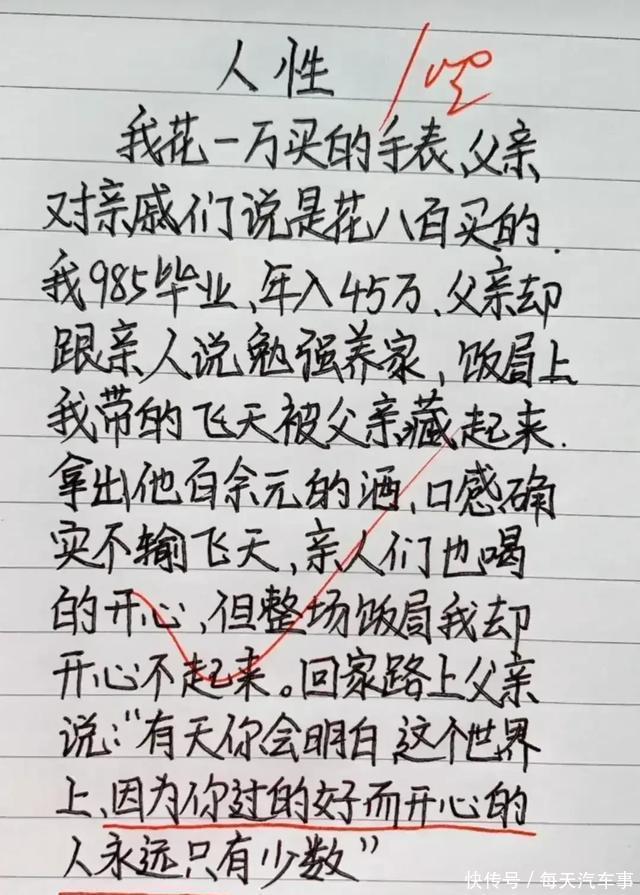 人性
我花一万买的手表、父亲
对亲戚们说是花八百买的.
我985毕业、年入45万、父亲却
跟亲人说勉强养家,饭局上
我带的飞天被父亲藏起来.
拿出他百余元的酒、口感确
实不输飞天、亲人们也喝
的开心,但整场饭局我却
开心不起来。回家路上父亲
说:“有天你会明白 这个世界
上、因为你过的好而开心的
人永远只有少数”
快传号/每天汽车事